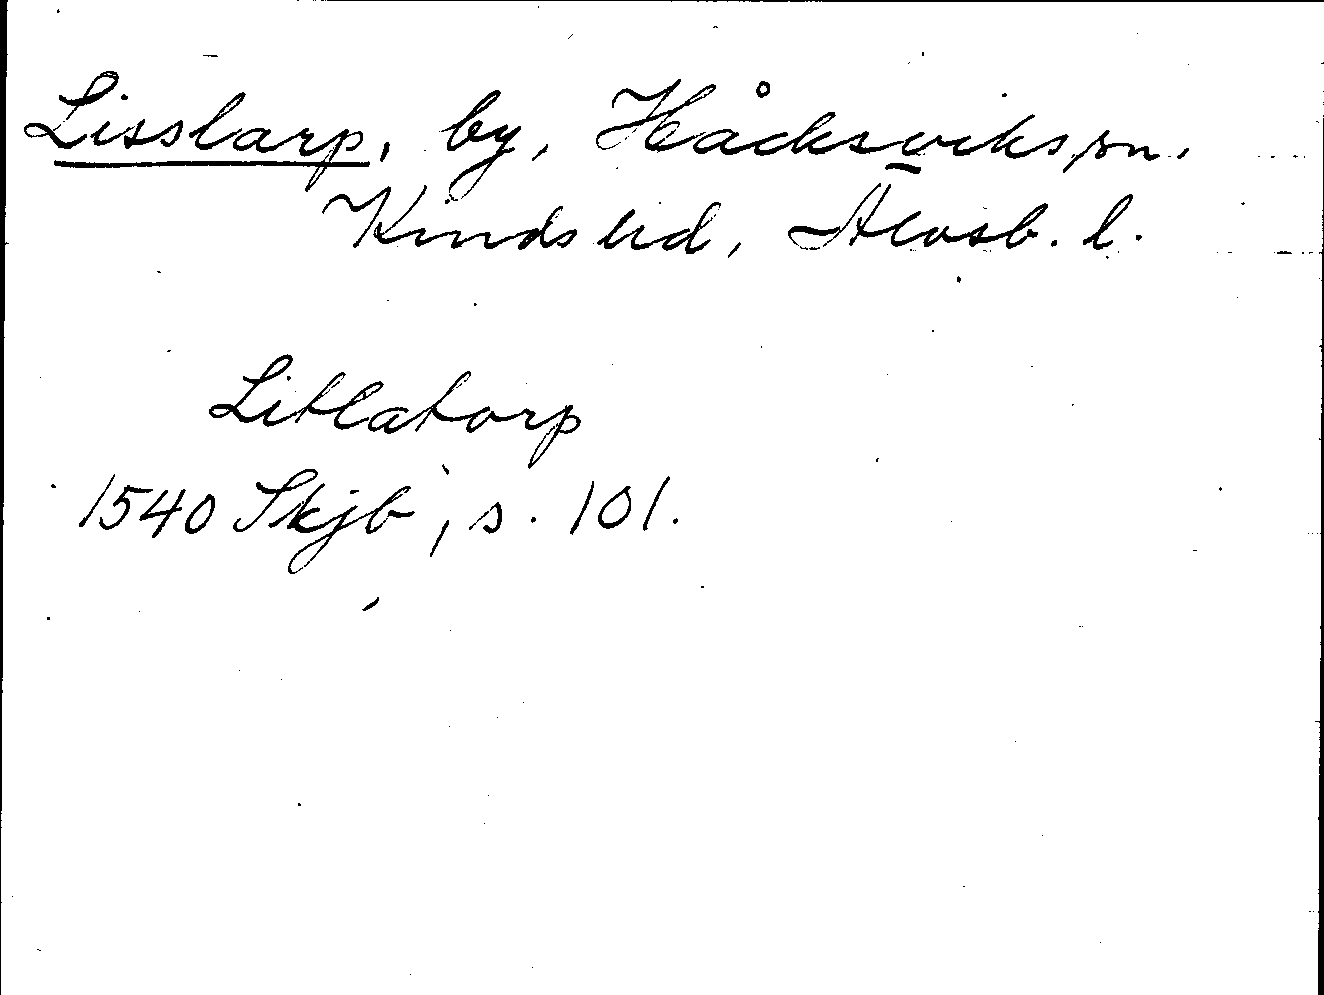 Lisslarp, by, Håcksviks sn.
Kinds hd, Älvsb. l.
Litlatorp
1540 Skjb, s. 101.